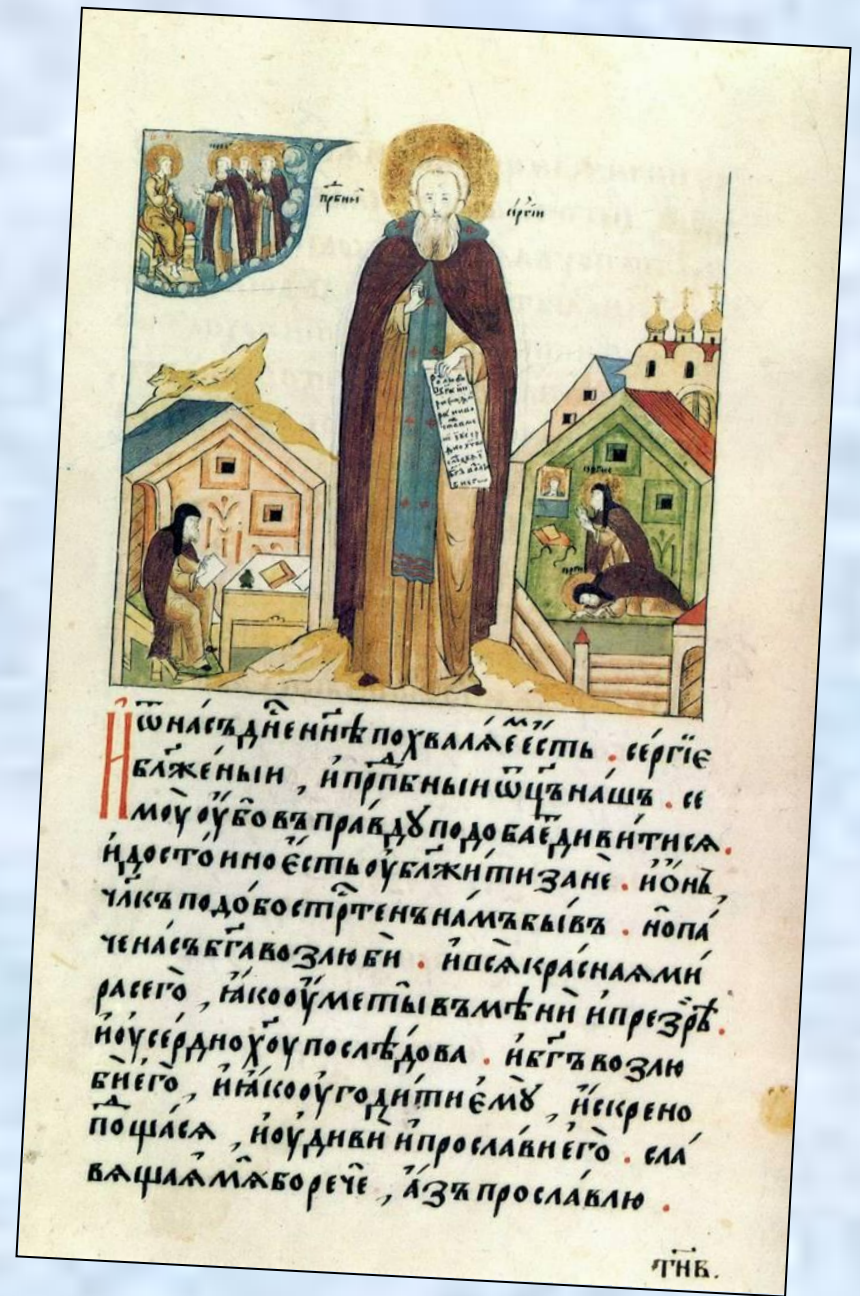 прпбныи
сергіи
Иѿна́съ дн҃е нн҃ѣ похвалѧ́е є҆́сть . се́ргїе
бл҃же́ныи , и҆прпⷣбныи ѿц҃ъ на́шъ . се
мꙋ̀ оу҆́бо въпра́вдꙋ подоба́е диви́тисѧ.
и҆досто́ино є҆́сть оу҆бл҃жи́ти занѐ . и҆ѻ҆́нъ,
чл҃къ подо́бострⷭ҇тенъ на́мъ бы́въ . но̀ па́
че на́съ бг҃а возлюбѝ . и҆всѧ̀ кра́снаѧ ми́
ра сегѡ̀ , ꙗ҆́ко оу҆ме́ты въмѣнѝ и҆презрѣ̀.
и҆оу҆се́рдно хꙋ҃ послѣ́дова . и҆бг҃ъ возлю
бѝ є҆го̀ , и҆ꙗ҆́ко оу҆годи́ти є҆мꙋ̀ , и҆́скрено
потща́сѧ , и҆оу҆дивѝ и҆просла́ви є҆го̀ . сла́
вѧщаѧ мѧ̀ бо речѐ , а҆́зъ просла́влю .
тн҃в.